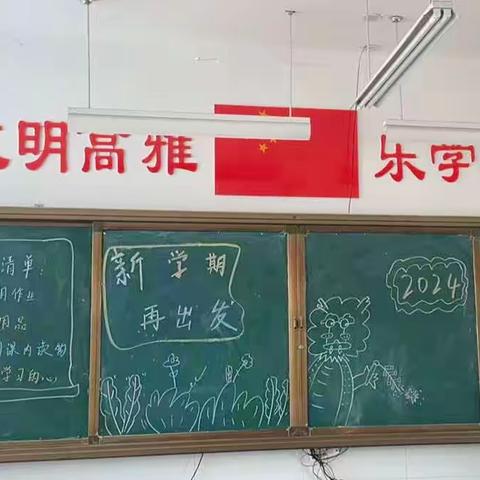 文明高雅
乐学
清单:
作业
用品
课内读物
学习的心
新学期
再出发
2024